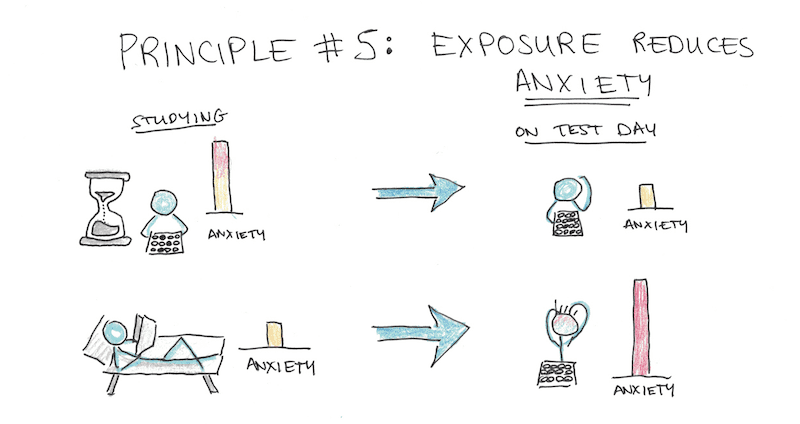 PRINCIPLE #5: EXPOSURE REDUCES
ANXIETY
STUDYING
ON TEST DAY
ANXIETY
ANXIETY
ANXIETY
ANXIETY